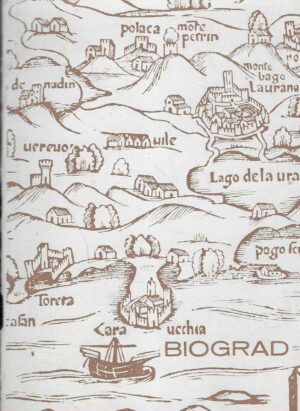 polaca
mote
perrin
monte
bago
Laurana
de nadin
uereuo
uile
Lago de la ura
pago
Toreta
casan
Zara uecchia
BIOGRAD